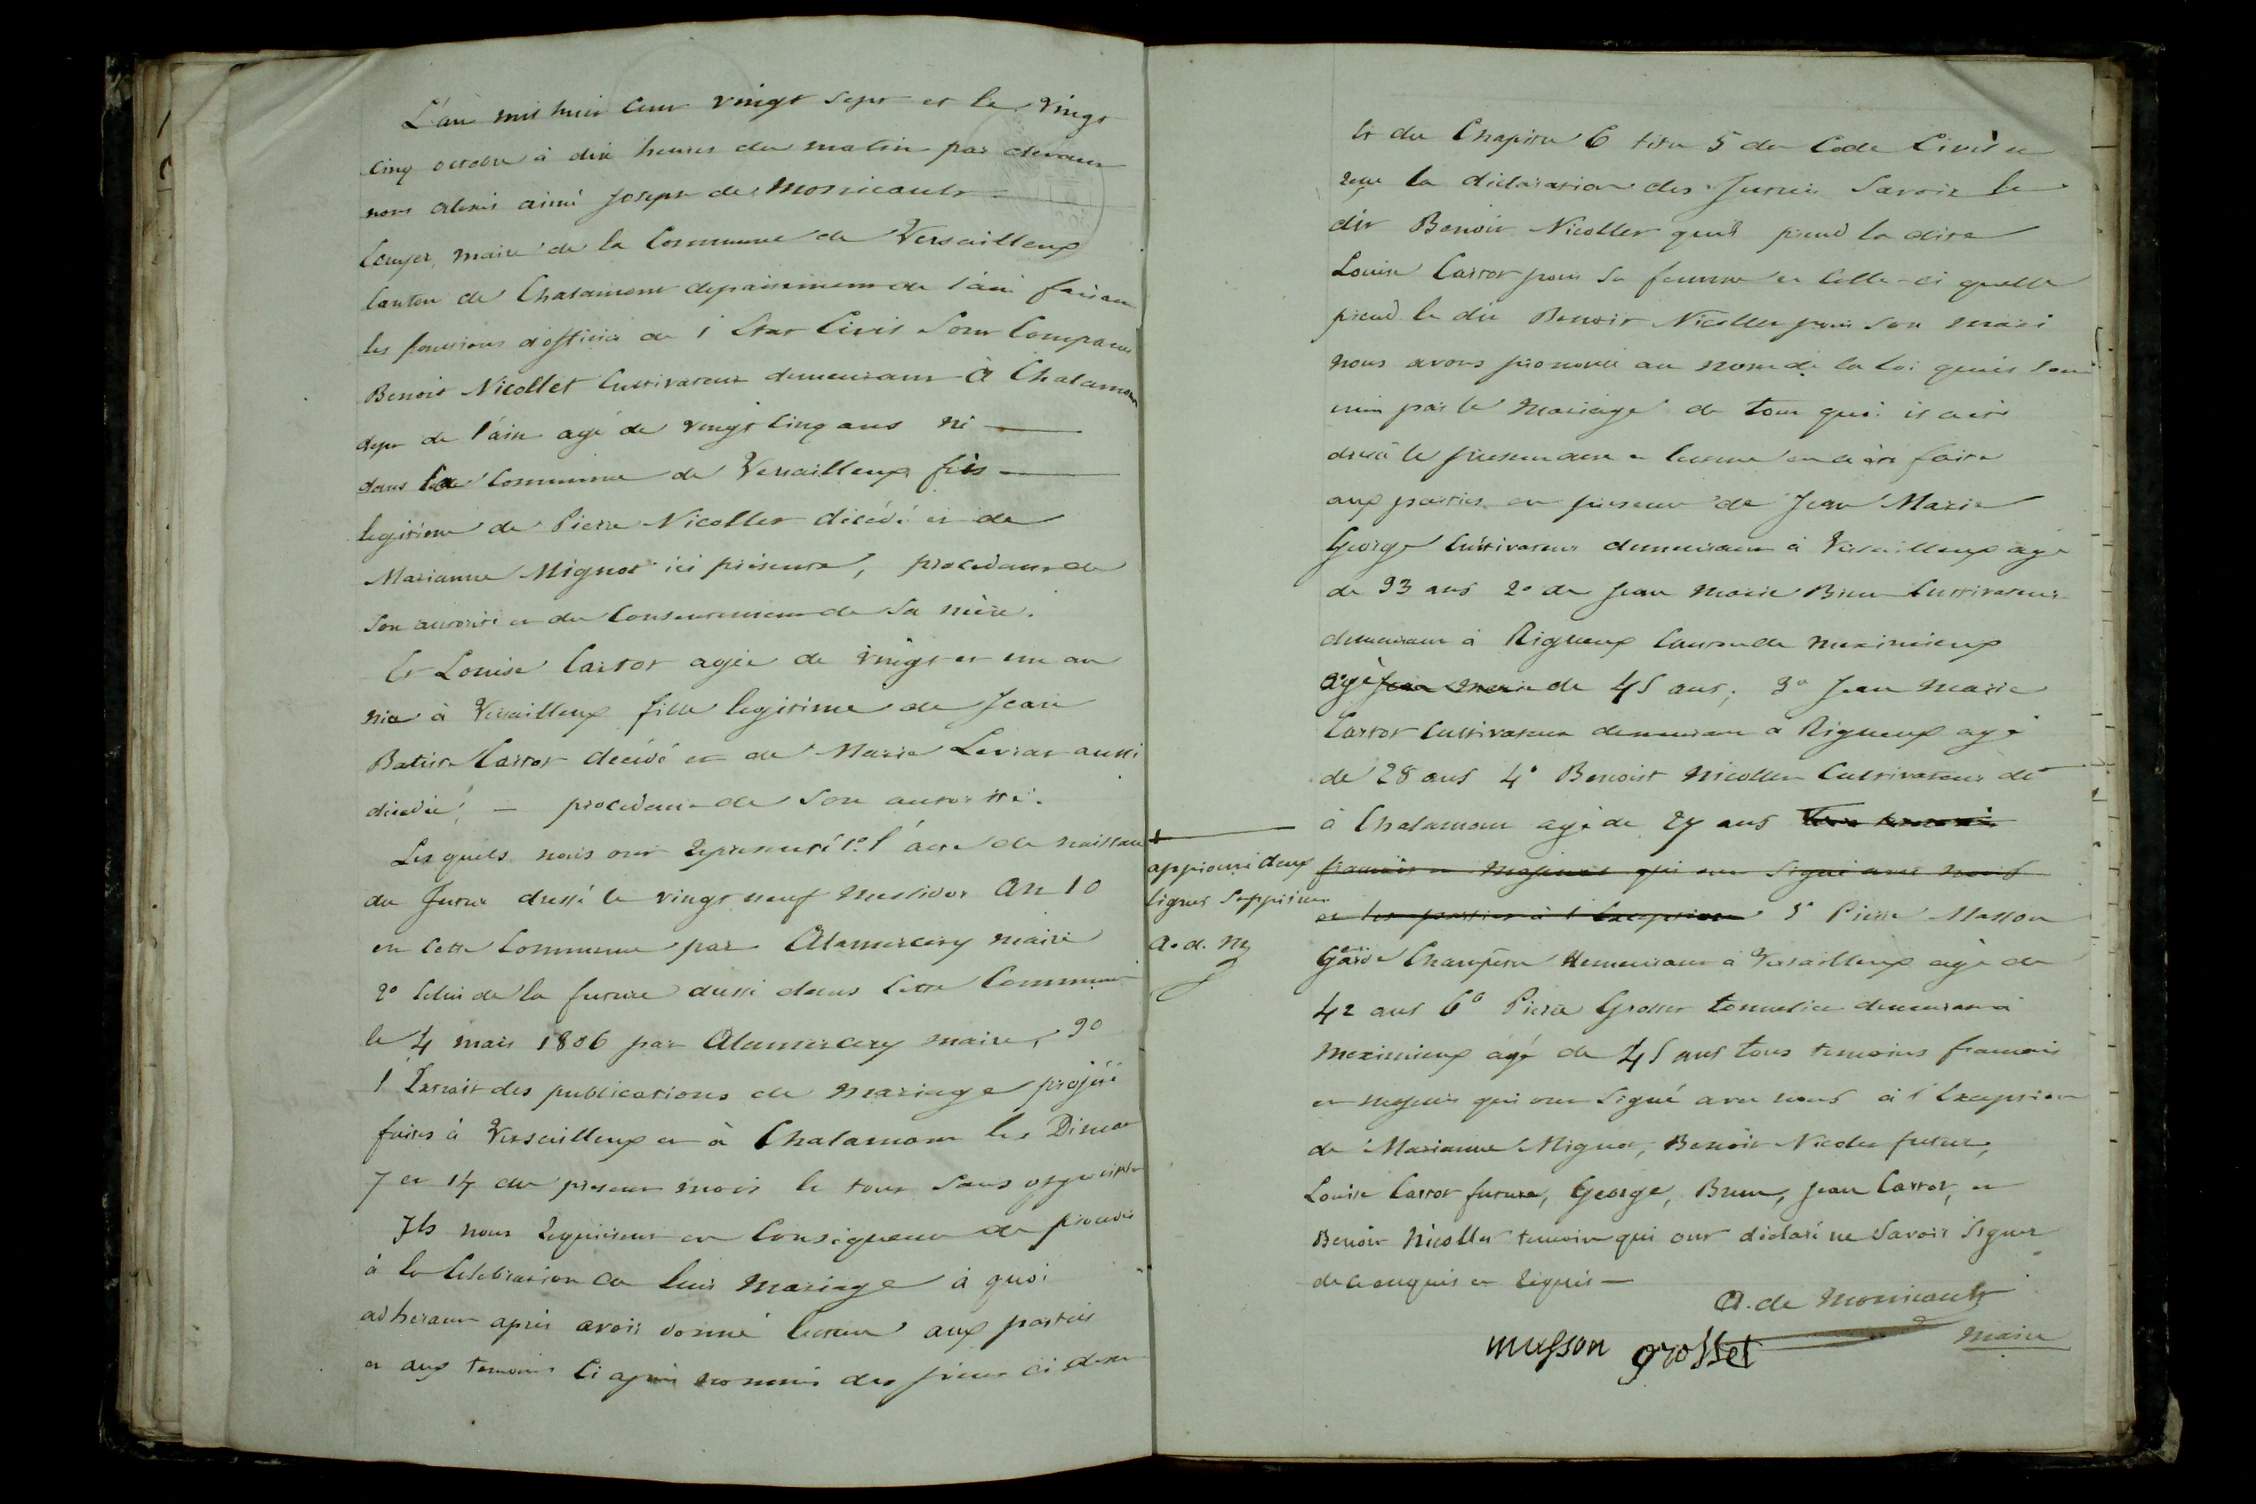 L'an mil huit cent vingt sept et le vingt
cinq octobre à dix heures du matin par devant
nous alexis aimé joseph de Monicault
Ecuyer, maire de la Commune de Versailleux
Canton de Chalamont departement de l'ain faisant
les fonctions d'officier de l'Etat Civil Sont Comparus
Benoit Nicollet Cultivateur demeurant à Chalamont
dept de l'ain agé de vingt cinq ans né —
dans la Commune de Versailleux fils —
legitime de Pierre Nicollet décédé et de
Marianne Mignot ici présente, procedant de
Son autorité et du Consentement de Sa mère.
Et Louise Carrot agée de vingt et un an
née à Versailleux fille legitime de Jean
Batiste Carrot décédé et de Marie Levrat aussi
décédée, — procedant de Son autorité.
Lesquels nous ont representé 1º l'acte de naissance
du futur dressé le vingt neuf Messidor An 10
en cette Commune par Alamercery maire
2º Celui de la future aussi dans Cette Commune
le 4 mars 1806 par Alamercery maire, 3º
l'Extrait des publications de mariage projété
faites à Versailleux et à Chalamont les Dimanches
7 et 14 du present mois le tout Sans opposition
Ils nous requierent en Consequence de proceder
à la Celebration de leur Mariage à quoi
adherant après avoir donné lecture aux parties
et aux temoins Ci après nommés des pieces ci dessus
Et du Chapitre 6 titre 5 du Code Civil et
reçu la declaration des Futurs Savoir le
dit Benoit Nicollet qu'il prend la dite
Louise Carrot pour Sa femme et Celle-ci quelle
prend le dit Benoit Nicollet pour Son mari
nous avons prononcé au nom de la loi qu'ils Sont
unis par le Mariage de tout quoi il a été
dressé le present acte et lecture en a été faite
aux parties en presence de Jean Marie
George Cultivateur demeurant à Versailleux agé
de 33 ans 2º de Jean Marie Brun Cultivateur
demeurant à Rigneux Canton de Meximieux
agé Jean Marie de 45 ans; 3º Jean Marie
Carrot Cultivateur demeurant à Rigneux agé
de 28 ans 4º Benoist Nicollet Cultivateur dt
à Chalamont agé de 27 ans Tous temoins
français et majeurs qui ont Signé avec nous
et les parties à l'Exception 5º Pierre Masson
Garde Champetre demeurant à Versailleux agé de
42 ans 6º Pierre Grosset tonnelier demeurant à
Meximieux agé de 45 ans tous temoins francais
et majeurs qui ont Signé avec nous à l'Exception
de Marianne Mignot, Benoit Nicollet futur,
Louise Carrot future, George, Brun, Jean Carrot, et
Benoit Nicollet temoin qui ont déclaré ne Savoir Signer
de ce enquis et requis —
approuvé deux
lignes Supprimées
A. d. M
A. de Monicault
maire
musson grosset